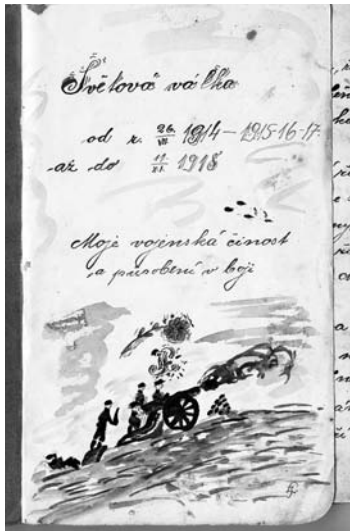 Světová válka
od r. 26./VII. 1914 – 1915-16-17-
až do 11./XI. 1918
Moje vojenská činost
a působení v boji